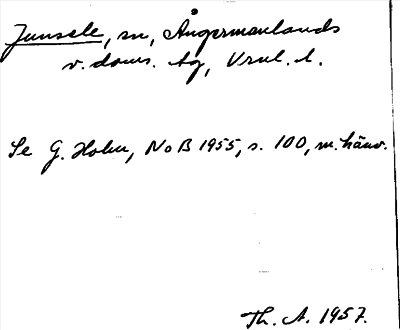 Junsele, sn, Ångermanlands
v. doms. tg, Vrnl. l.
Se G. Holm, NoB 1955, s. 100, m. hänv.
Th. A. 1957.